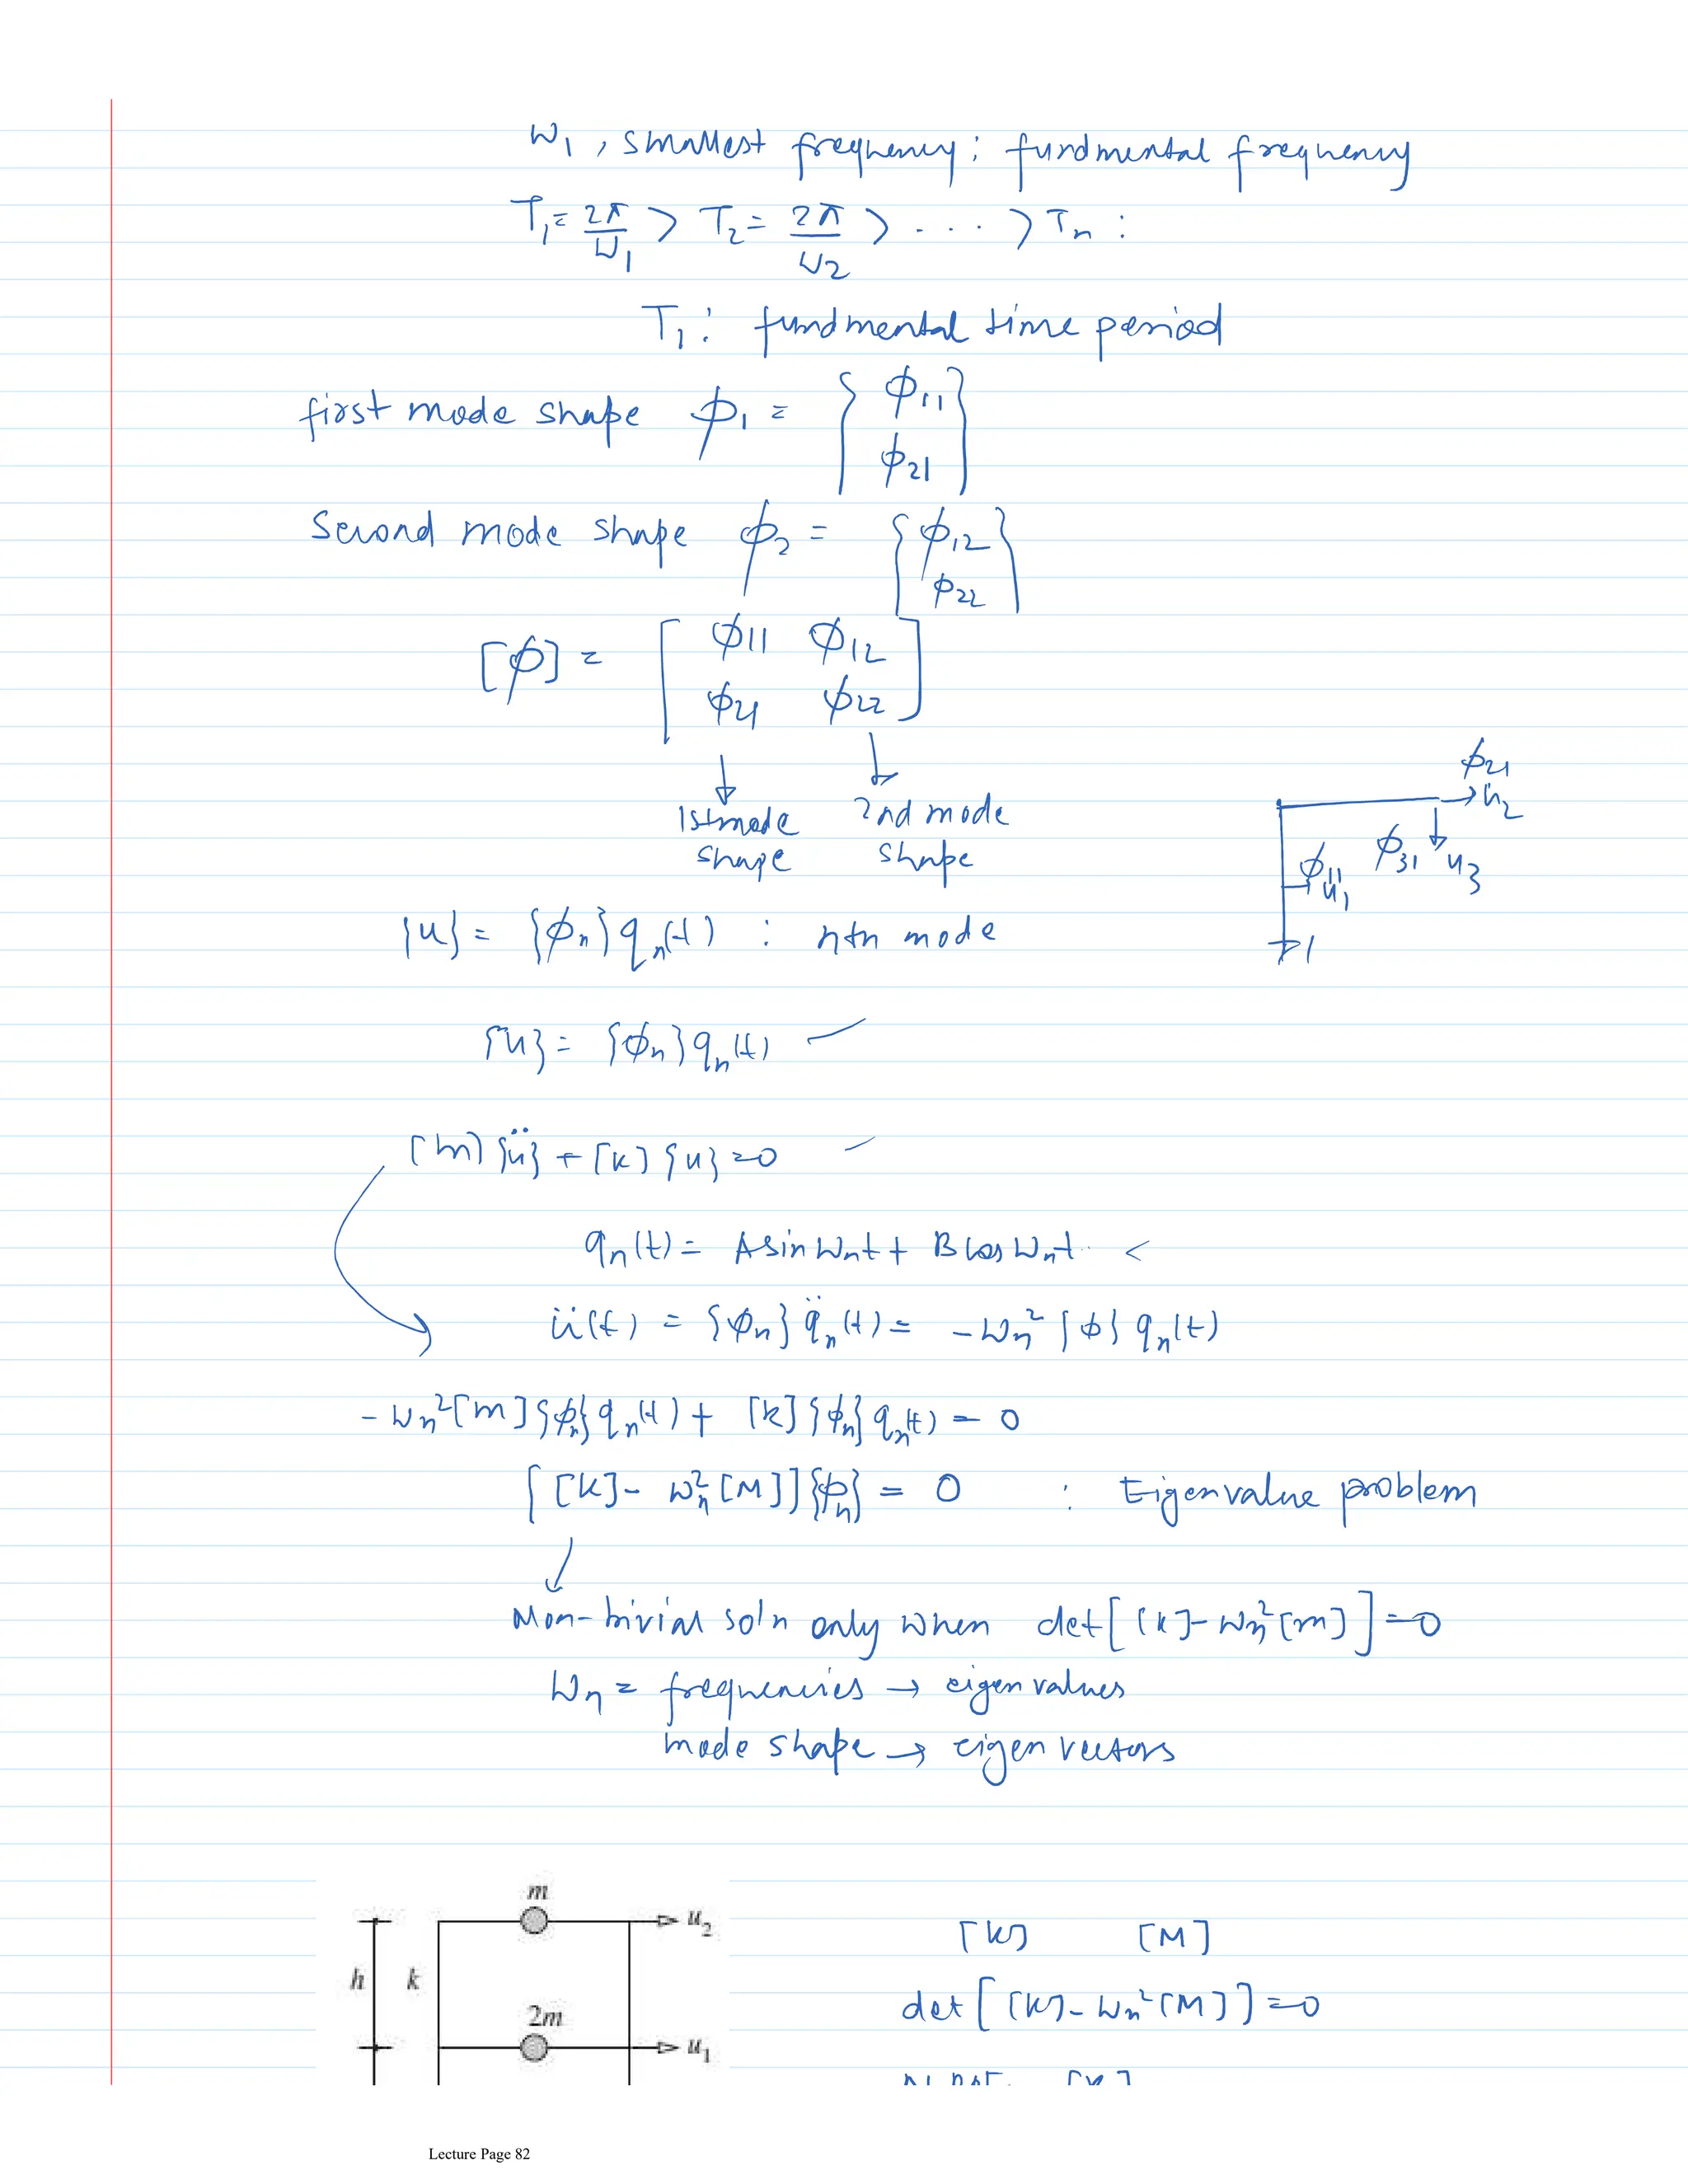 ω₁, smallest frequency : fundmental frequency
T₁ = 2π/ω₁ > T₂ = 2π/ω₂ > . . . > Tₙ :
T₁ : fundmental time period
first mode shape ϕ₁ = { ϕ₁₁
ϕ₂₁ }
Second mode shape ϕ₂ = { ϕ₁₂
ϕ₂₂ }
[ϕ] = [ ϕ₁₁ ϕ₁₂
ϕ₂₁ ϕ₂₂ ]
↓ ↓
1st mode shape
2nd mode shape
ϕ₂₁
→ u₂
ϕ₃₁ ↓ u₃
ϕ₁₁
u₁
{u} = {ϕₙ} qₙ(t) : nth mode
{u} = {ϕₙ} qₙ(t)
[m] {ü} + [k] {u} = 0
qₙ(t) = A sin ωₙt + B cos ωₙt
ü(t) = {ϕₙ} q̈ₙ(t) = -ωₙ² {ϕ} qₙ(t)
-ωₙ² [m] {ϕₙ} qₙ(t) + [k] {ϕₙ} qₙ(t) = 0
[ [k] - ωₙ² [M] ] {ϕₙ} = 0 : Eigenvalue problem
Non-trivial soln only when det [ [k] - ωₙ² [m] ] = 0
ωₙ = frequencies → eigen values
mode shape → eigen vectors
m
u₂
h k
2m
u₁
[k] [M]
det [ [k] - ωₙ² [M] ] = 0
Lecture Page 82